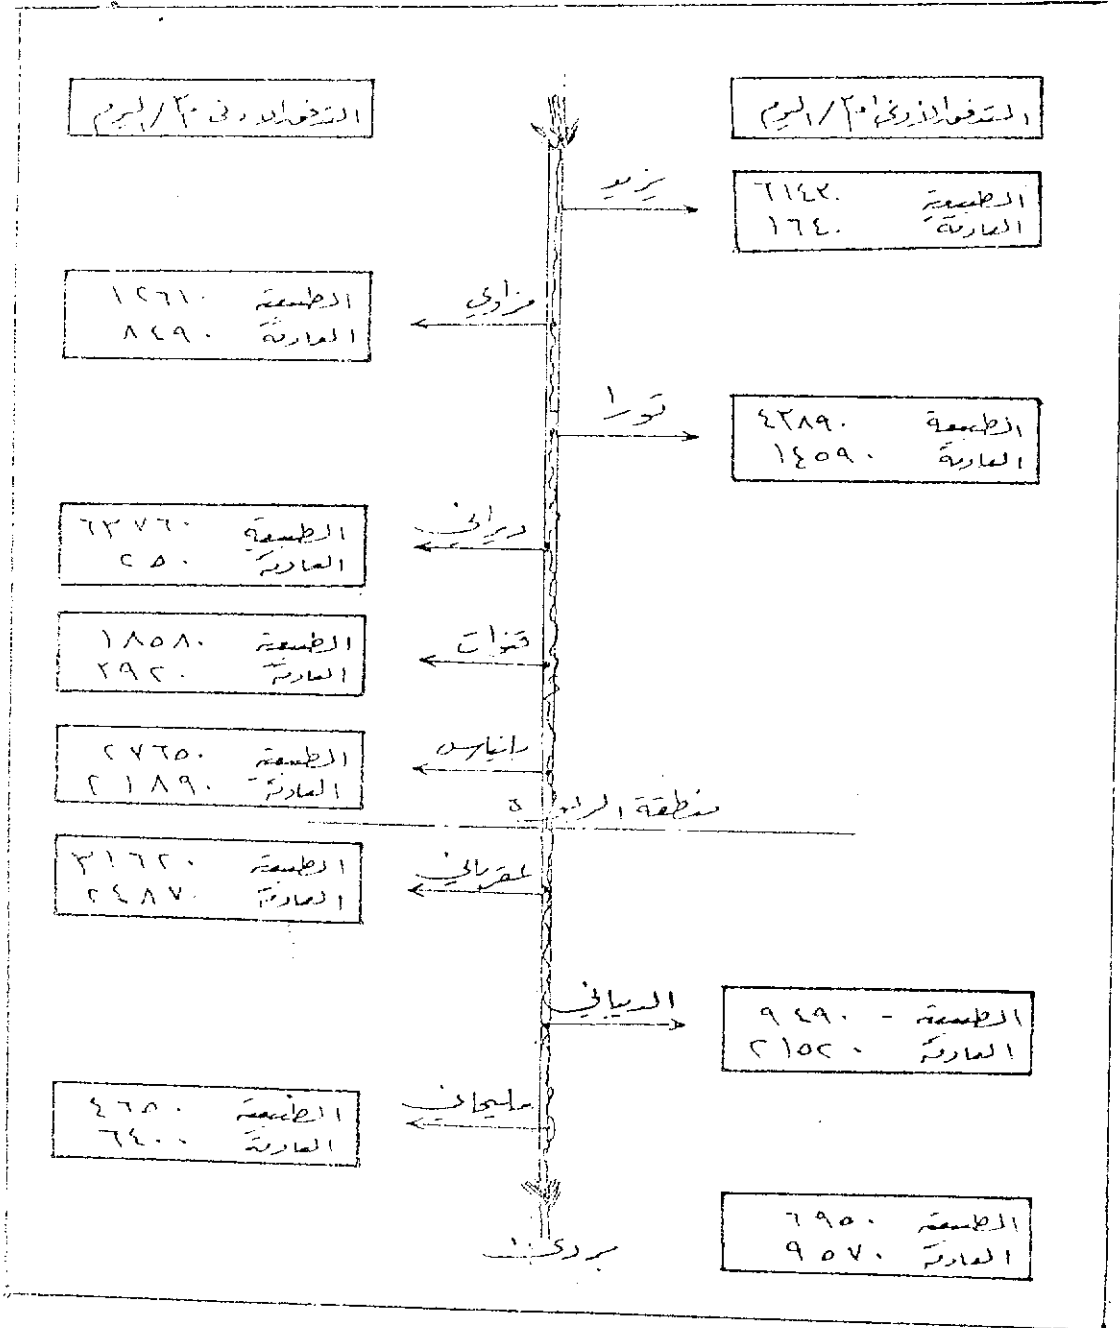 التدفق الادنى م٣/اليوم
التدفق الأدنى م٣/اليوم
يزيد
الطبيعية ٦١٤٣٠
العادمة ١٦٤٠
مزاوي
الطبيعية ١٢٦١٠
العادمة ٨٤٩٠
تورا
الطبيعة ٤٣٨٩٠
العادمة ١٤٥٩٠
ديراني
الطبيعية ٦٣٧٦٠
العادمة ٢٥٠
قنوات
الطبيعية ١٨٥٨٠
العادمة ٢٩٢٠
بانياس
الطبيعية ٢٧٦٥٠
العادمة ٢١٨٩٠
منطقة الربوة
عقرباني
الطبيعية ٣١٦٢٠
العادمة ٢٤٨٧٠
الديباني
الطبيعية - ٩٤٩٠
العادمة ٢١٥٢٠
مليحاني
الطبيعية ٤٦٥٠
العادمة ٦٤٠٠
بردى
الطبيعية ٦٩٥٠
العادمة ٩٥٧٠